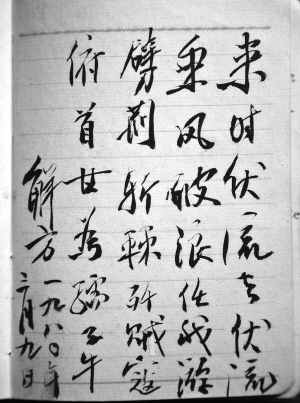 来时伏流去伏流
乘风破浪任我游
劈荆斩棘歼贼寇
俯首甘为孺子牛
解方
一九八〇年
二月九日